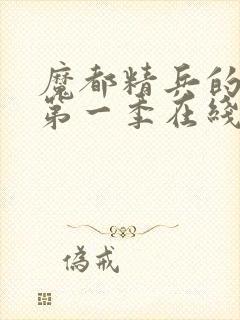 魔都精兵的
第一季在线
偽戒